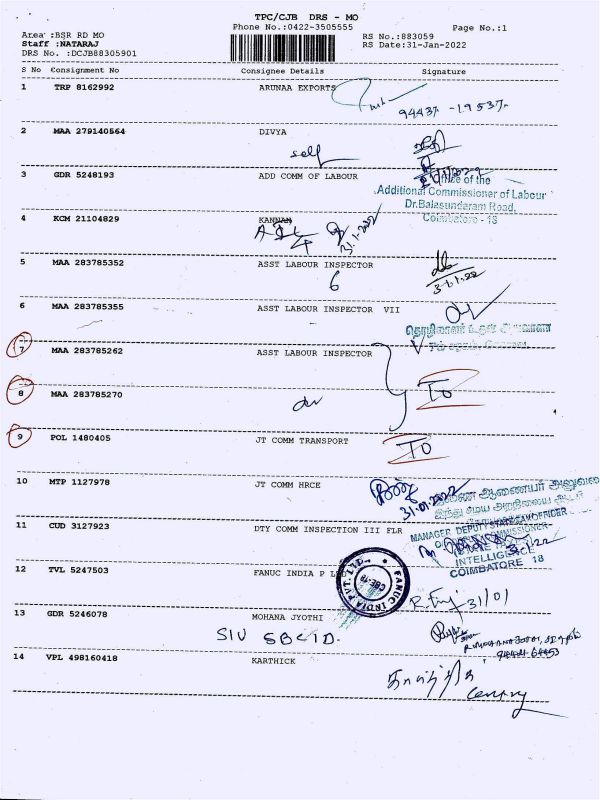 TPC/CJB DRS - MO
Phone No.:0422-3505555 Page No.:1
Area :BSR RD MO RS No.:883059
Staff :NATARAJ RS Date:31-Jan-2022
DRS No. :DCJB88305901
S No Consignment No Consignee Details Signature
1 TRP 8162992 ARUNAA EXPORTS
94437 - 19537-
2 MAA 279140564 DIVYA
self
3 GDR 5248193 ADD COMM OF LABOUR
Office of the
Additional Commissioner of Labour
Dr.Balasundaram Road,
Coimbatore - 18
4 KCM 21104829 KANNAN
31.1.2022
5 MAA 283785352 ASST LABOUR INSPECTOR
6
31.1.22
6 MAA 283785355 ASST LABOUR INSPECTOR VII
7 MAA 283785262 ASST LABOUR INSPECTOR
8 MAA 283785270
To
9 POL 1480405 JT COMM TRANSPORT
To
10 MTP 1127978 JT COMM HRCE
31.01.2022
11 CUD 3127923 DTY COMM INSPECTION III FLR
INTELLIGENCE
COIMBATORE 18
12 TVL 5247503 FANUC INDIA P L
FANUC INDIA PVT. LTD.
CBE-18
31/01
13 GDR 5246078 MOHANA JYOTHI
SIU SBCID.
14 VPL 498160418 KARTHICK